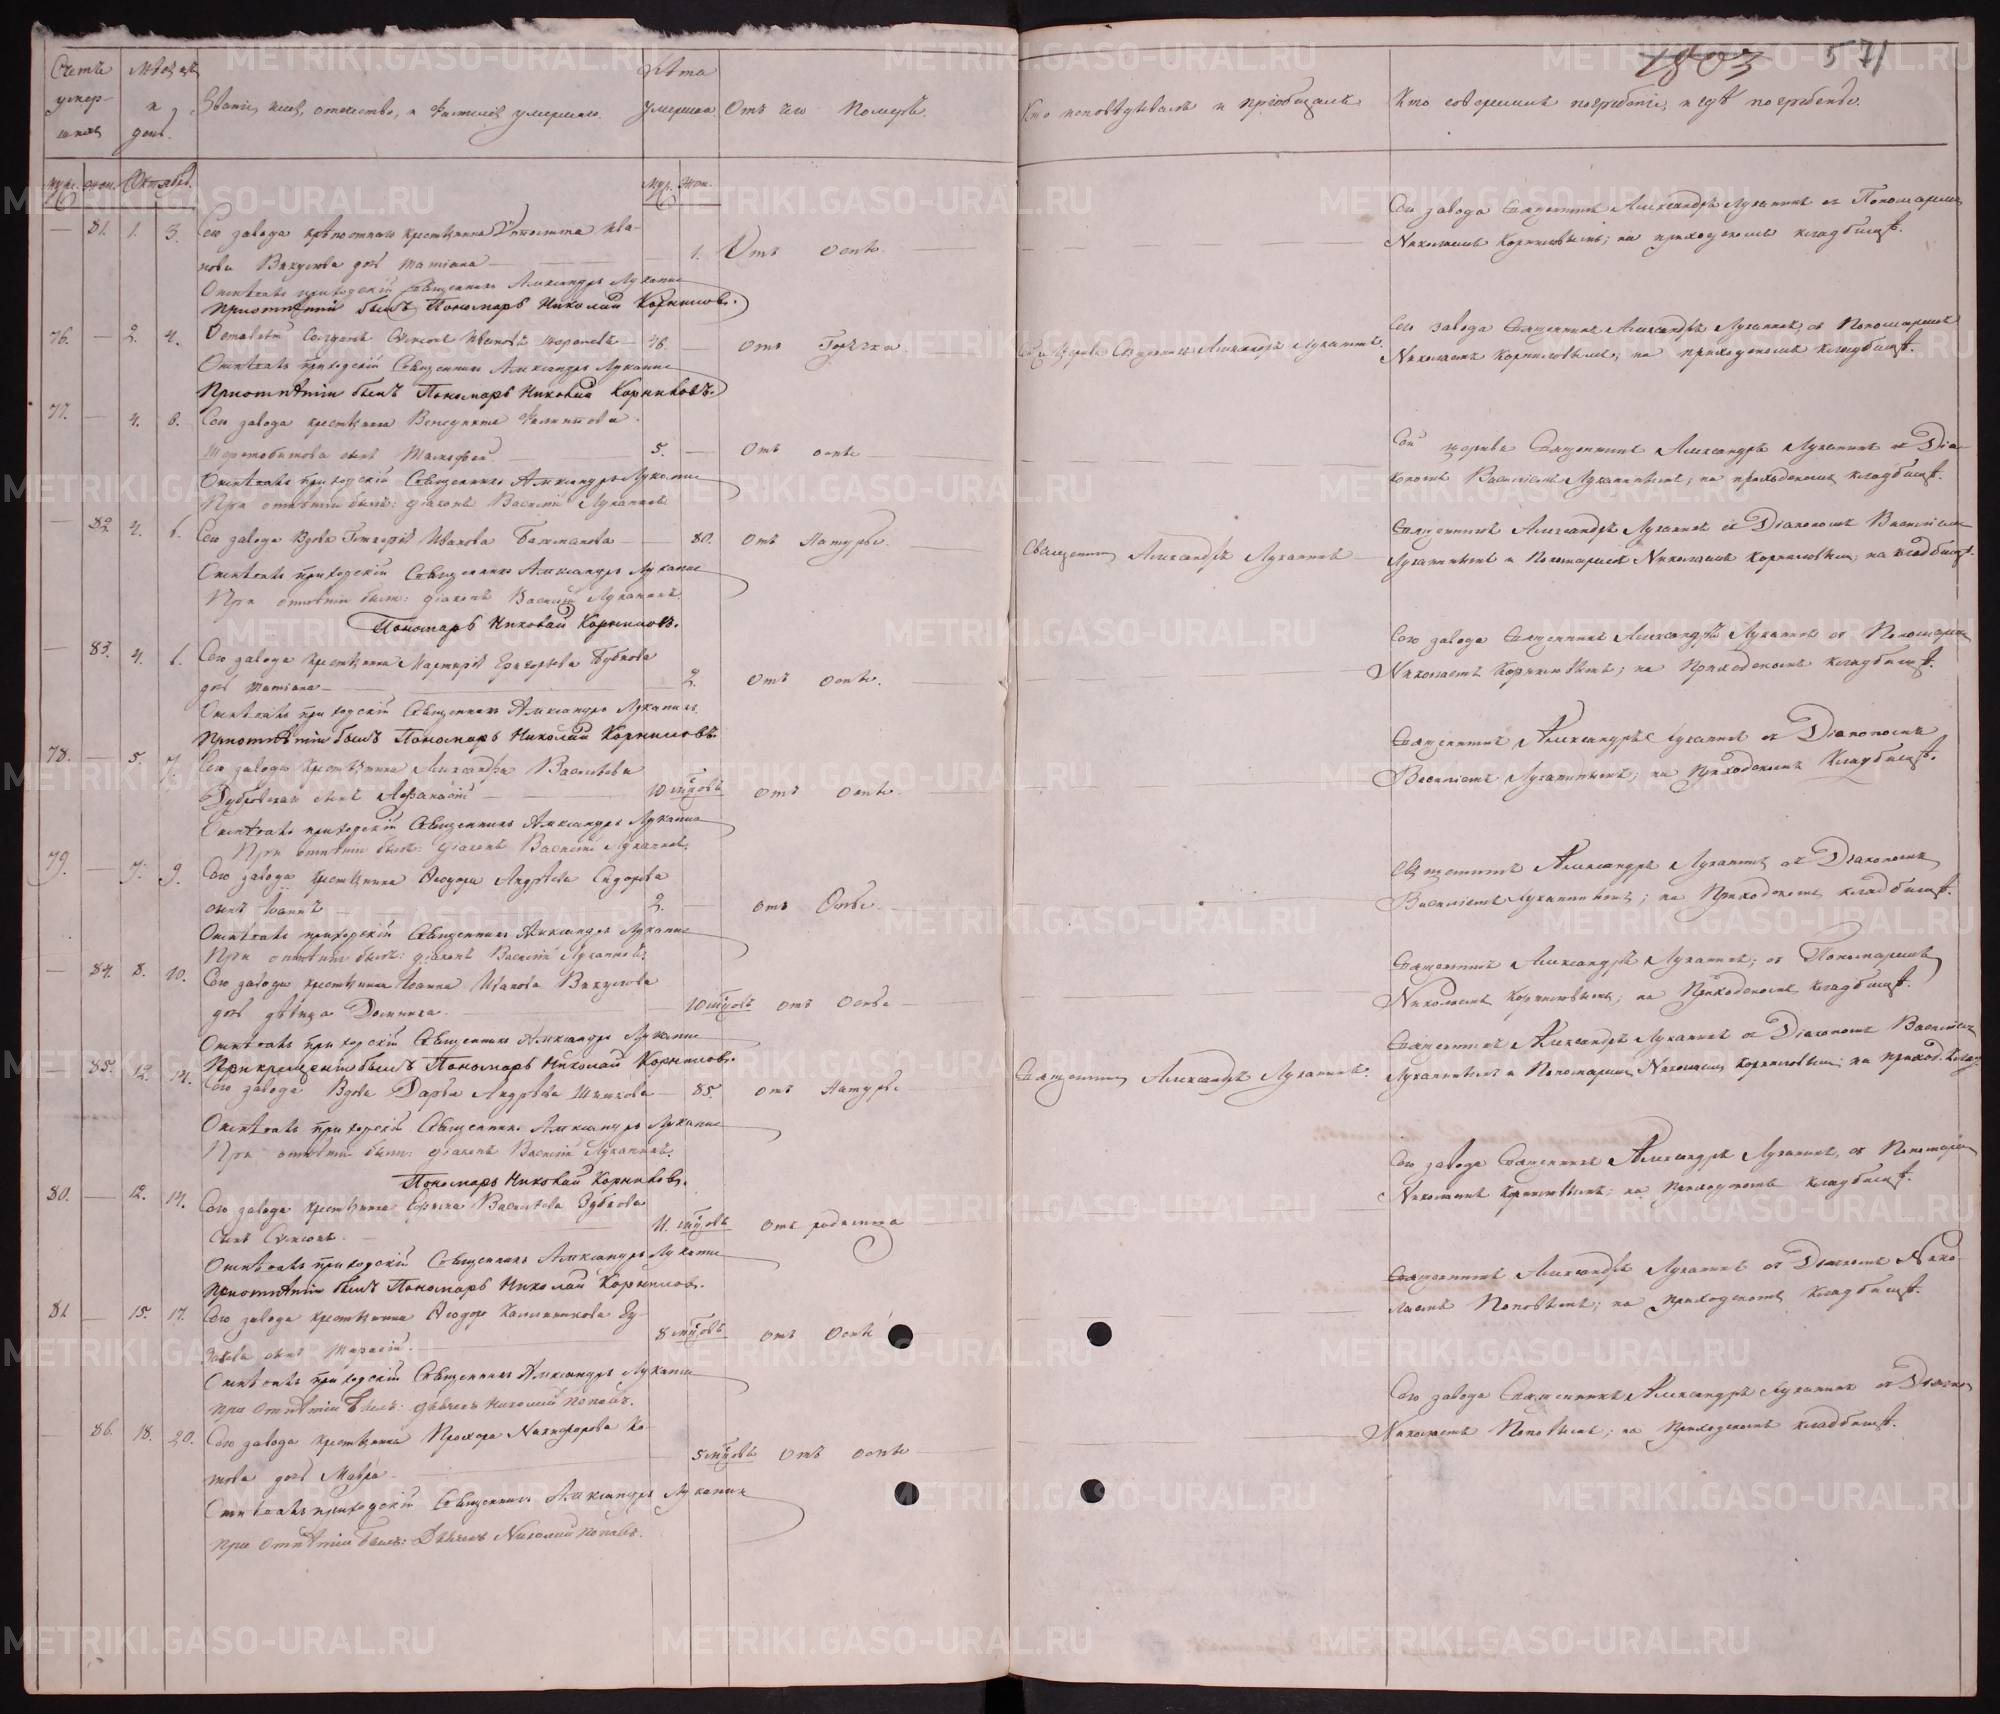 1803 571
Счетъ умер-шихъ
Мѣсяцъ и день.
Званіе, имя, отчество, и фамилія умершаго.
Лѣта умершаго
Отъ чего померъ.
Кто исповѣдывалъ и пріобщалъ
Кто совершилъ погребеніе, и гдѣ погребены.
муж. жен. Октябрь. Муж. Жен.
— 81. 1. 3. Сего завода крѣпостнаго крестьянина Ипполита Ива-
нова Викулова дочь Татіана — 1. Отъ оспы.
Отпѣвалъ приходскій Священникъ Александръ Луканинъ
При отпѣтіи былъ Пономарь Николай Корниловъ.
Сего завода Священникъ Александръ Луканинъ съ Пономаремъ
Николаемъ Корниловымъ; на приходскомъ кладбищѣ.
76. — 2. 4. Отставной Солдатъ Симеонъ Ивановъ — 48. — отъ Горячки
Отпѣвалъ приходскій Священникъ Александръ Луканинъ
При отпѣтіи былъ Пономарь Николай Корниловъ.
Священникъ Александръ Луканинъ.
Сего завода Священникъ Александръ Луканинъ съ Пономаремъ
Николаемъ Корниловымъ; на приходскомъ кладбищѣ.
77. — 4. 6. Сего завода крестьянина Венедикта Филиппова
сынъ Тимофей — 5. — отъ оспы
Отпѣвалъ приходскій Священникъ Александръ Луканинъ
При отпѣтіи былъ: діаконъ Василій Луканинъ.
Сей церкви Священникъ Александръ Луканинъ съ Діа-
кономъ Василіемъ Луканинымъ; на приходскомъ кладбищѣ.
— 82 4. 6. Сего завода Вдова Гликерія Иванова — 80. отъ Натуры.
Отпѣвалъ приходскій Священникъ Александръ Луканинъ
При отпѣтіи были: діаконъ Василій Луканинъ.
Пономарь Николай Корниловъ.
Священникъ Александръ Луканинъ
Священникъ Александръ Луканинъ съ Діакономъ Василіемъ
Луканинымъ и Пономаремъ Николаемъ Корниловымъ; на кладбищѣ.
— 83. 4. 6. Сего завода крестьянина Мартирія Григорьева Бубнова
дочь Татіана — 2. отъ оспы.
Отпѣвалъ приходскій Священникъ Александръ Луканинъ.
При отпѣтіи былъ Пономарь Николай Корниловъ
Сего завода Священникъ Александръ Луканинъ съ Пономаремъ
Николаемъ Корниловымъ; на приходскомъ кладбищѣ.
78. — 5. 7. Сего завода крестьянина Александра Васильева
сынъ Аѳанасій — 10 мѣсѧцовъ отъ оспы.
Отпѣвалъ приходскій Священникъ Александръ Луканинъ
При отпѣтіи былъ: діаконъ Василій Луканинъ.
Священникъ Александръ Луканинъ съ Діакономъ
Василіемъ Луканинымъ; на приходскомъ кладбищѣ.
79. — 7. 9. Сего завода крестьянина Ѳеодора Андреева Сидорова
сынъ Іоаннъ 2. — отъ Оспы.
Отпѣвалъ приходскій Священникъ Александръ Луканинъ
При отпѣтіи былъ: діаконъ Василій Луканинъ.
Священникъ Александръ Луканинъ съ Діакономъ
Василіемъ Луканинымъ; на Приходскомъ кладбищѣ.
— 84. 8. 10. Сего завода крестьянина Іоанна Иванова Викулова
дочь дѣвица Домника — 10 мцовъ отъ Оспы
Отпѣвалъ приходскій Священникъ Александръ Луканинъ
При крещеніи былъ Пономарь Николай Корниловъ.
Священникъ Александръ Луканинъ; съ Пономаремъ
Николаемъ Корниловымъ; на Приходскомъ кладбищѣ.
— 85. 12. 14. Сего завода Вдова Дарья Андреева Шишкова — 85. отъ Натуры
Отпѣвалъ приходскій Священникъ Александръ Луканинъ
При отпѣтіи были: діаконъ Василій Луканинъ.
Пономарь Николай Корниловъ.
Священникъ Александръ Луканинъ.
Священникъ Александръ Луканинъ съ Діакономъ Василіемъ
Луканинымъ и Пономаремъ Николаемъ Корниловымъ; на приход. кладб.
80. — 12. 14. Сего завода крестьянина Василіева Зубкова
сынъ Симеонъ — 11. мцовъ отъ родимца
Отпѣвалъ приходскій Священникъ Александръ Луканинъ
При отпѣтіи былъ Пономарь Николай Корниловъ.
Сего завода Священникъ Александръ Луканинъ, съ Пономаремъ
Николаемъ Корниловымъ; на приходскомъ кладбищѣ.
81. — 15. 17. Сего завода крестьянина Ѳеодора Калинникова
сынъ Тарасій. — 8 мцовъ отъ Оспы
Отпѣвалъ приходскій Священникъ Александръ Луканинъ
при отпѣтіи былъ: дьячекъ Николай Поповъ.
Священникъ Александръ Луканинъ съ Дьячкомъ Нико-
лаемъ Поповымъ; на приходскомъ кладбищѣ.
— 86. 18. 20. Сего завода крестьянина Прохора Никифорова Ко-
това дочь Мавра — 5 мцовъ отъ оспы
Отпѣвалъ приходскій Священникъ Александръ Луканинъ
при отпѣтіи былъ: Дьячекъ Николай Поповъ.
Сего завода Священникъ Александръ Луканинъ съ Дьячкомъ
Николаемъ Поповымъ; на приходскомъ кладбищѣ.
METRIKI.GASO-URAL.RU